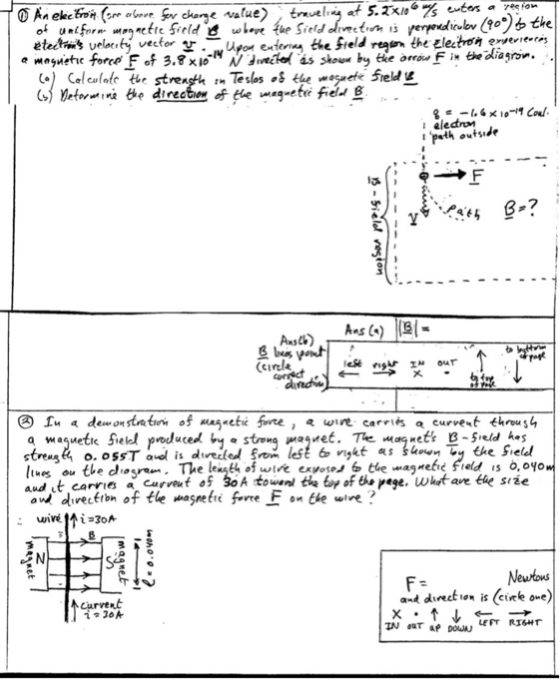 ① An electron (see above for charge value), traveling at 5.2x10⁶ m/s enters a region
of uniform magnetic field B where the field direction is perpendicular (90°) to the
electron's velocity vector V. Upon entering the field region the electron experiences
a magnetic force F of 3.8 x10⁻¹⁴ N directed as shown by the arrow F in the diagram.
(a) Calculate the strength in Teslas of the magnetic field B
(b) Determine the direction of the magnetic field B.
q = -1.6 x 10⁻¹⁹ Coul.
electron
path outside
F
B-field region
V
Path
B=?
Ans(a) |B| =
Ans(b)
B has point
(circle
correct
direction)
left right IN OUT
x •
to top
of page
to bottom
of page
② In a demonstration of magnetic force, a wire carries a current through
a magnetic field produced by a strong magnet. The magnet's B-field has
strength 0.055T and is directed from left to right as shown by the field
lines on the diagram. The length of wire exposed to the magnetic field is 0.040m
and it carries a current of 30A toward the top of the page. What are the size
and direction of the magnetic force F on the wire?
wire ↑ i=30A
B
magnet
N
S
magnet
l = 0.040m
↑ current
i = 30A
F= Newtons
and direction is (circle one)
X • ↑ ↓ ← →
IN OUT UP DOWN LEFT RIGHT